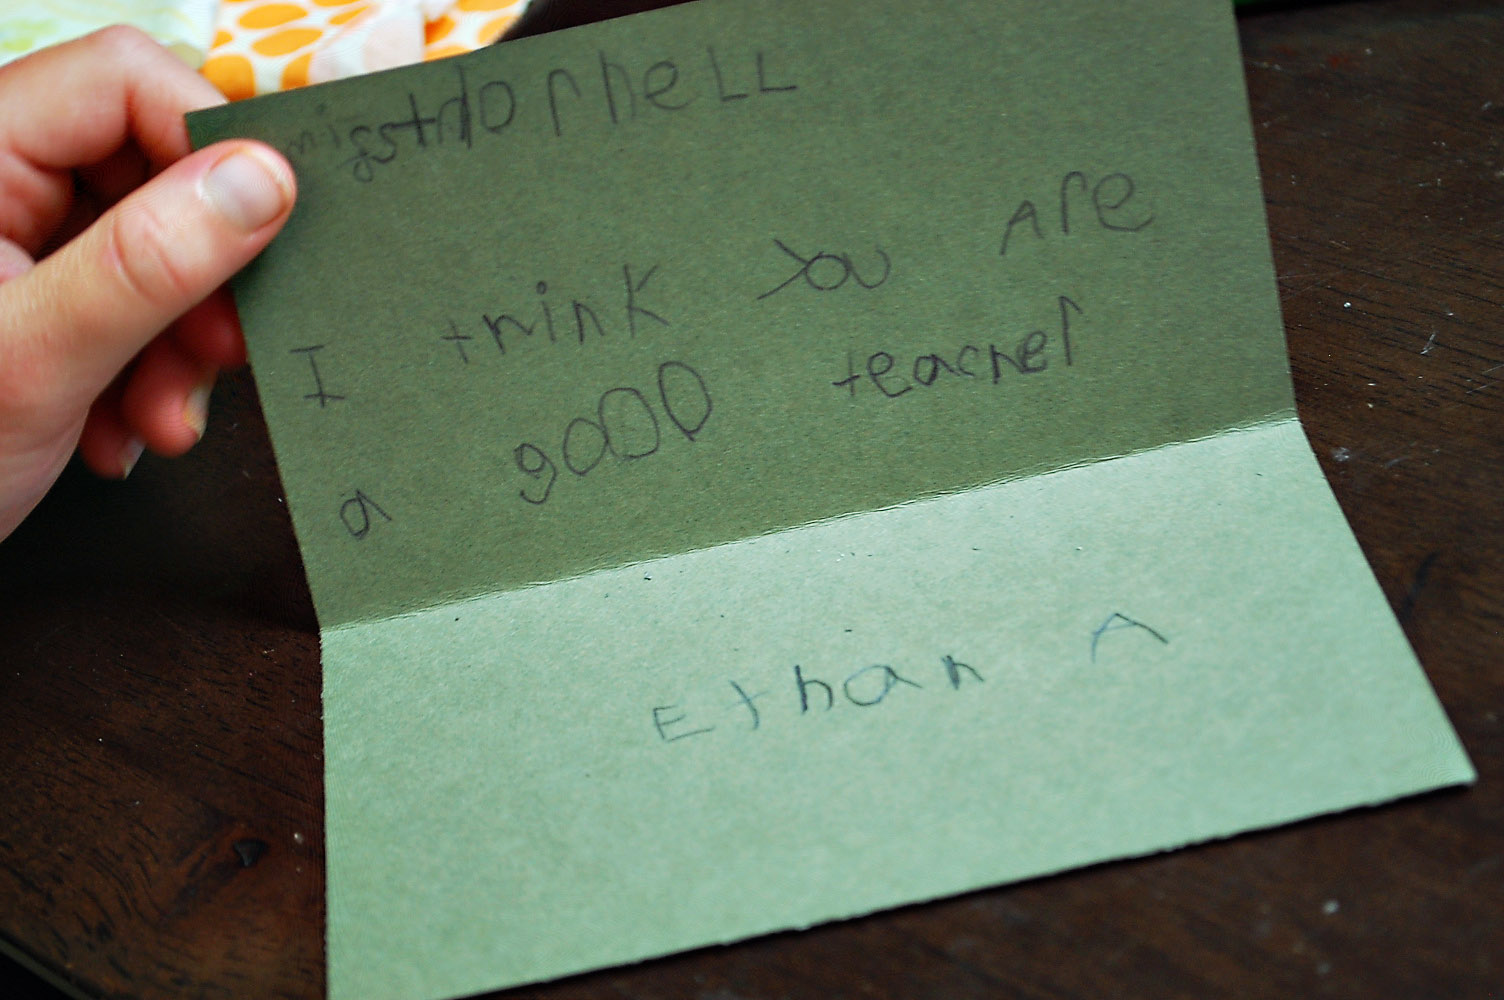 missthornell
I think you Are
a gooD teacher
Ethan A